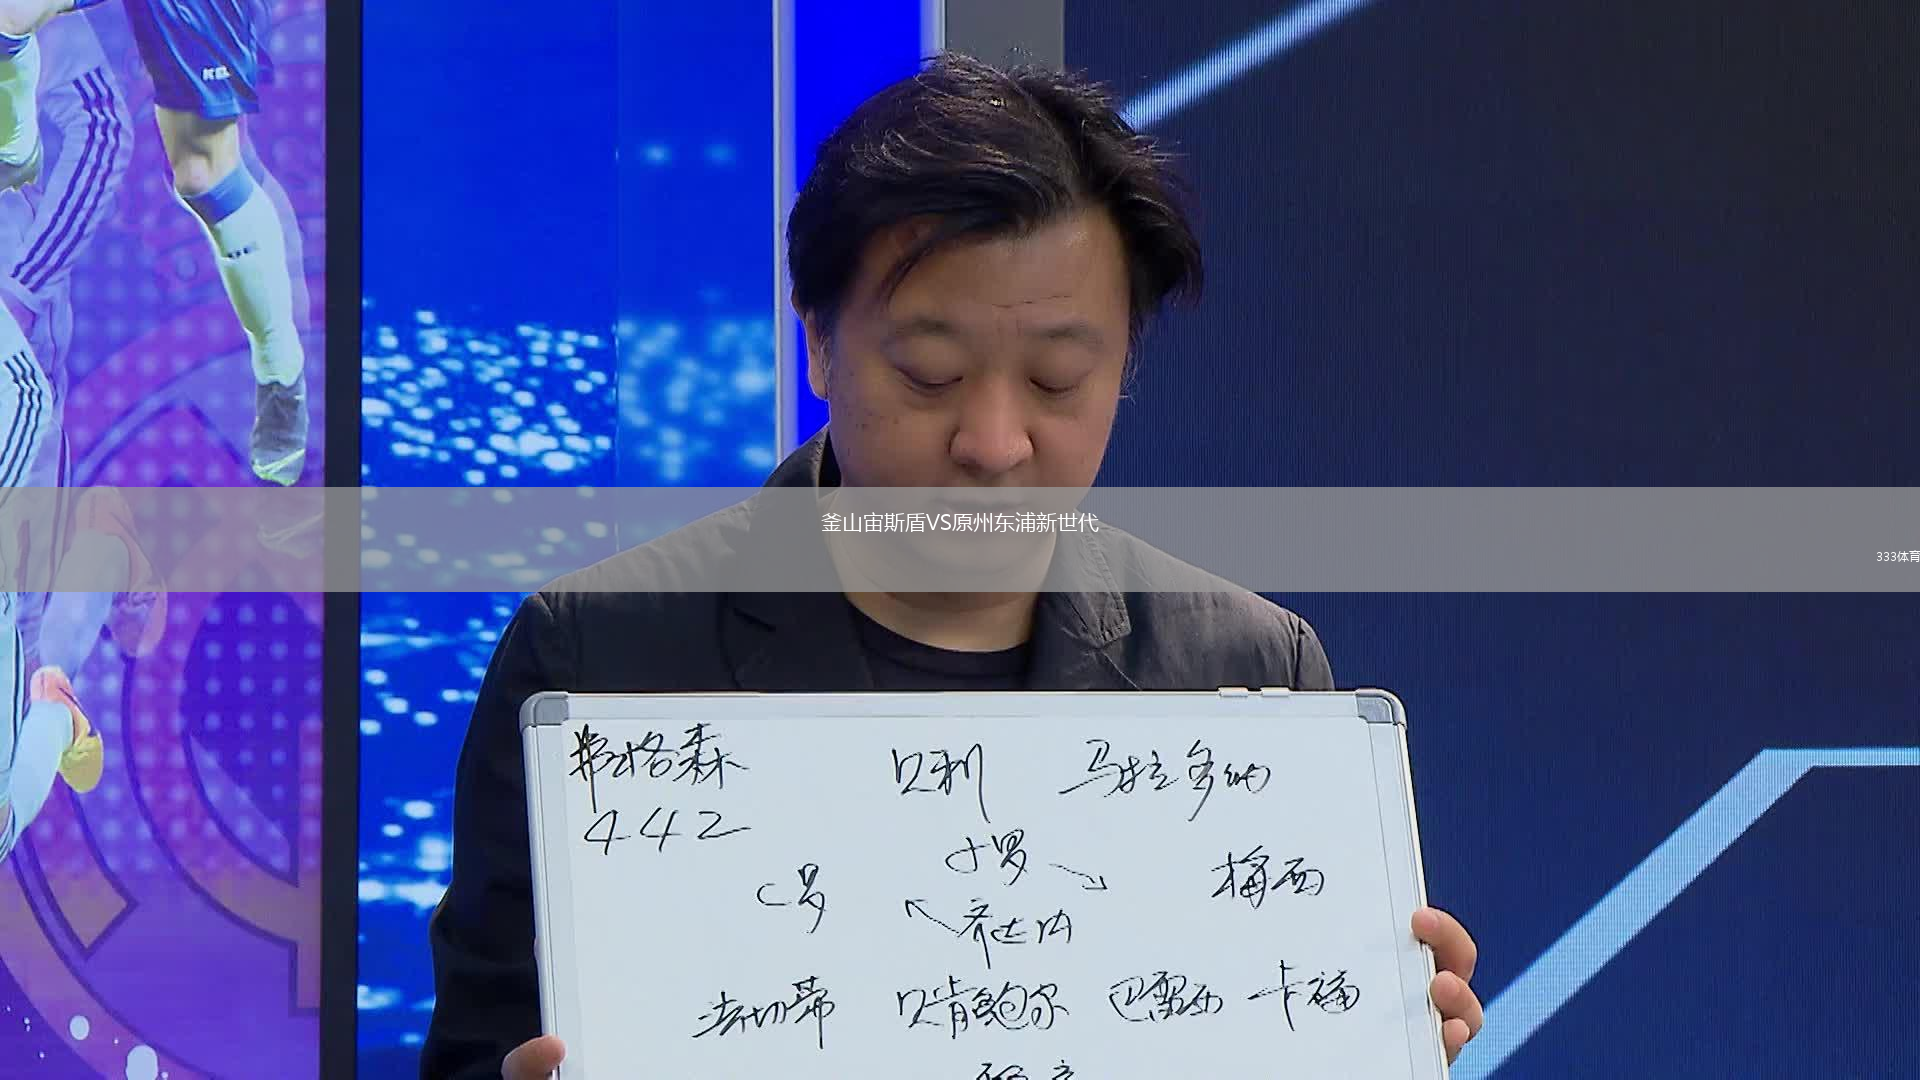 KEL
釜山宙斯盾VS原州东浦新世代
333体育
弗格森 贝利 马拉多纳
442
小罗
C罗 梅西
齐达内
法切蒂 贝肯鲍尔 巴雷西 卡福